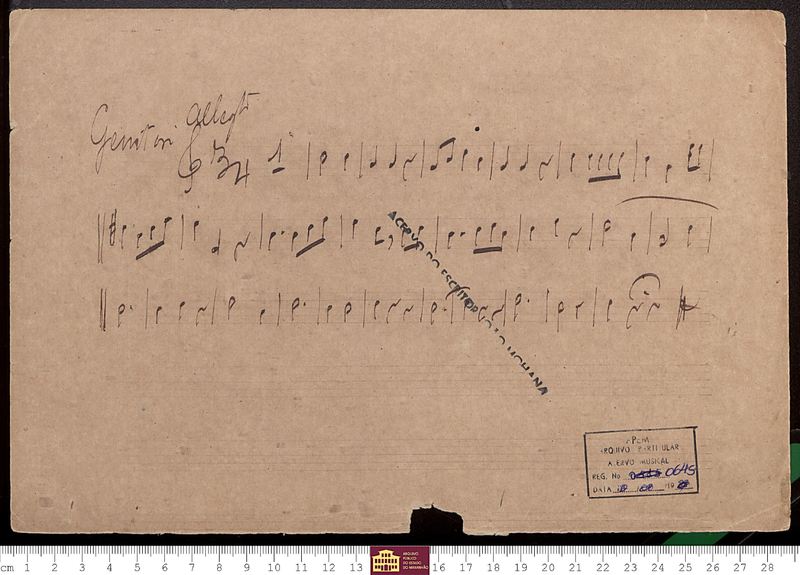 Genitori Allegto
3/4 1º
ACERVO DO ESCRITOR JOÃO MOHANA
APEM
ARQUIVO PARTICULAR
ACERVO MUSICAL
REG. No 0645
DATA
cm 1 2 3 4 5 6 7 8 9 10 11 12 13 16 17 18 19 20 21 22 23 24 25 26 27 28
ARQUIVO
PÚBLICO
DO ESTADO
DO MARANHÃO